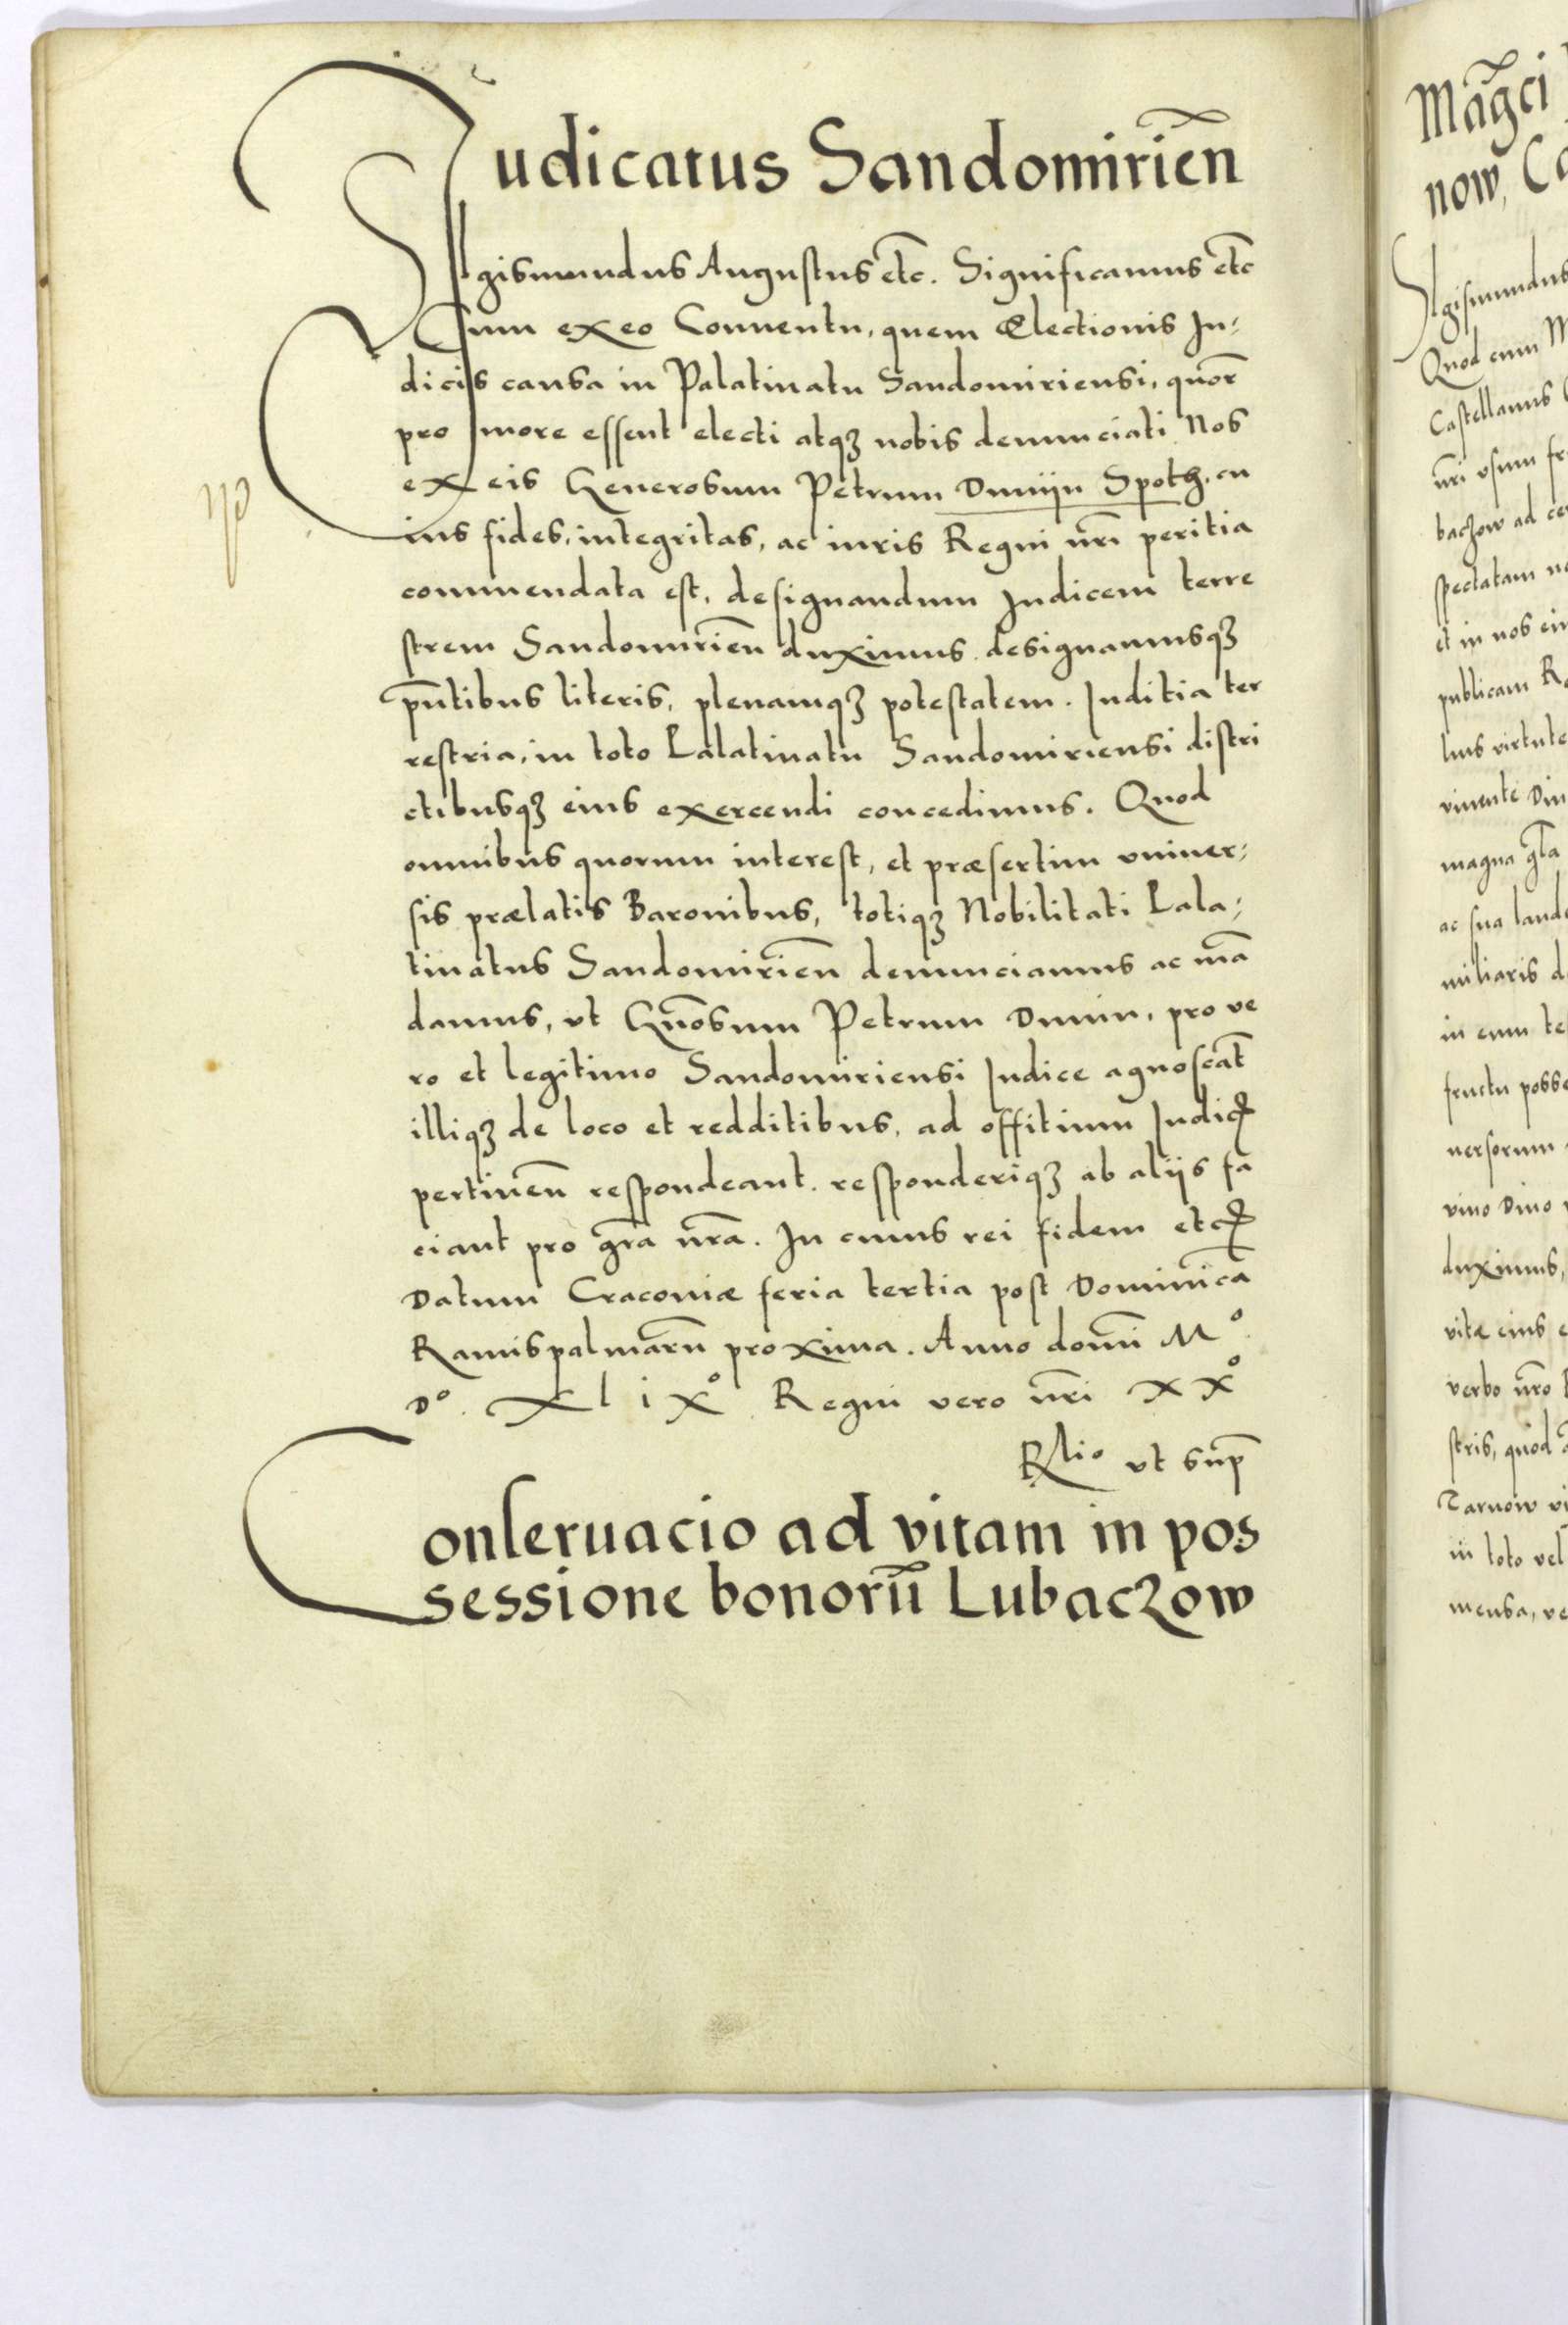 Iudicatus Sandomirien̄
Sigismundus Augustus etc̄. Significamus etc̄
Cum ex eo Conuentu, quem Electionis Iu-
dicis causa in Palatinatu Sandomiriensi, quor̄
pro more essent electi atqꝫ nobis denunciati Nos
ex eis Generosum Petrum Dunijn Spoth, cu
ius fides, integritas, ac iuris Regni nr̄i peritia
commendata est, designandum Iudicem terre
strem Sandomirien̄ duximus designamusqꝫ
pn̄tibus literis, plenamqꝫ potestatem. Iuditia ter
restria, in toto Palatinatu Sandomiriensi distri
ctibusqꝫ eius exercendi concedimus. Quod
omnibus quorum interest, et præsertim vniuer-
sis prælatis Baronibus, totiqꝫ Nobilitati Pala-
tinatus Sandomirien̄ denunciamus ac mā
damus, vt Gn̄osum Petrum Dunin, pro ve
ro et legitimo Sandomiriensi Iudice agnoscāt
illiqꝫ de loco et redditibus, ad offitium Iudicꝭ
pertinen̄ respondeant. responderiqꝫ ab alijs fa
ciant pro gr̄a nr̄a. In cuius rei fidem etcꝭ
Datum Cracoviæ feria tertia post Dominicā
Ramispalmarū proxima. Anno domī Mº.
Dº. XlixO Regni vero nr̄i XXº
Rlio vt sup̄
Conseruacio ad vitam in pos
sessione bonorū Lubaczow
Mag̃ci
now, Ca
Sigismundus
Quod cum M
Castellanus
nr̄i vsum fr
baczow ad ce
spectatam
et in nos
publicam
lius virtute
viuente
magna gr̄a
ac sua laud
miliaris d
in eum te
fructu posse
uersorum
vino Diuo
duximus,
vitæ eius
verbo nr̄o
stris, quod
Tarnow vi
in toto vel
mensa, ve